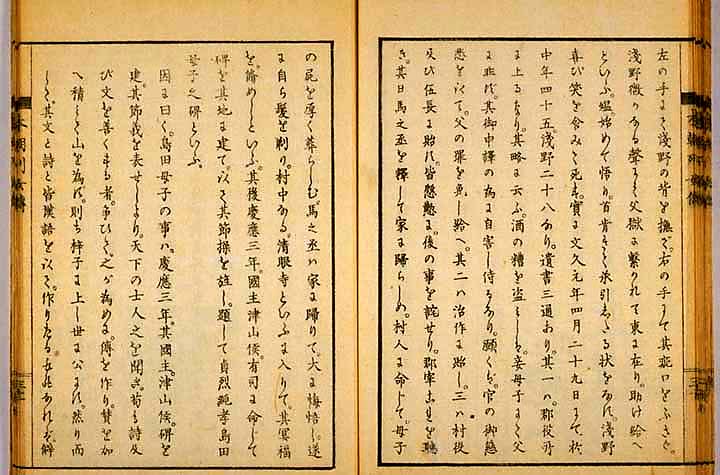 左の手にて浅野の背を撫で。右の手にて其疵口をふさぐ。
浅野微かなる聲にて父獄に繋がれて東に在り。助け給へ
といふ。媼始めて悟り。首肯きて承引たる状をなす。浅野
喜び笑を含みて死す。實に文久元年四月二十九日にて。於
中年四十五。浅野二十八なり。遺書三通あり。其一ハ。郡役丹
に上るなり。其略に云ふ。酒の糟を盗しハ。妾母子にて父
に非ず。其御申譯の為に自害し侍るなり。願くハ。官の御慈
悲を以て。父の罪を免し給へ。其二ハ治作に貽し。三ハ村役
及び伍長に貽す。皆慇懃に。後の事を詫せり。郡宰これを聽
き。其日馬之丞を釋して家に歸らしめ。村人に命じて。母子
の屍を厚く葬らしむ。馬之丞ハ家に歸りて。大に悔悟し。遂
に自ら髪を剃り。村中なる。清眼寺といふに入りて。其冥福
を。脩めしといふ。其後慶應三年。國主津山侯。有司に命じて
碑を其地に建て。以て其節操を旌し。題して貞烈純孝島田
母子之碑といふ。
因に曰く。島田母子の事ハ。慶應三年。其國主。津山侯。碑を
建。其節義を表せしより。天下の士人之を聞き。苟も詩及
び文を善くする者。争ひて。之が為めに。傳を作り。賛を加
へ積て山を為す。則ち梓に上し世に公にす。然り而
して。其文と詩と皆漢語を以て。作りたるものなれバ。解